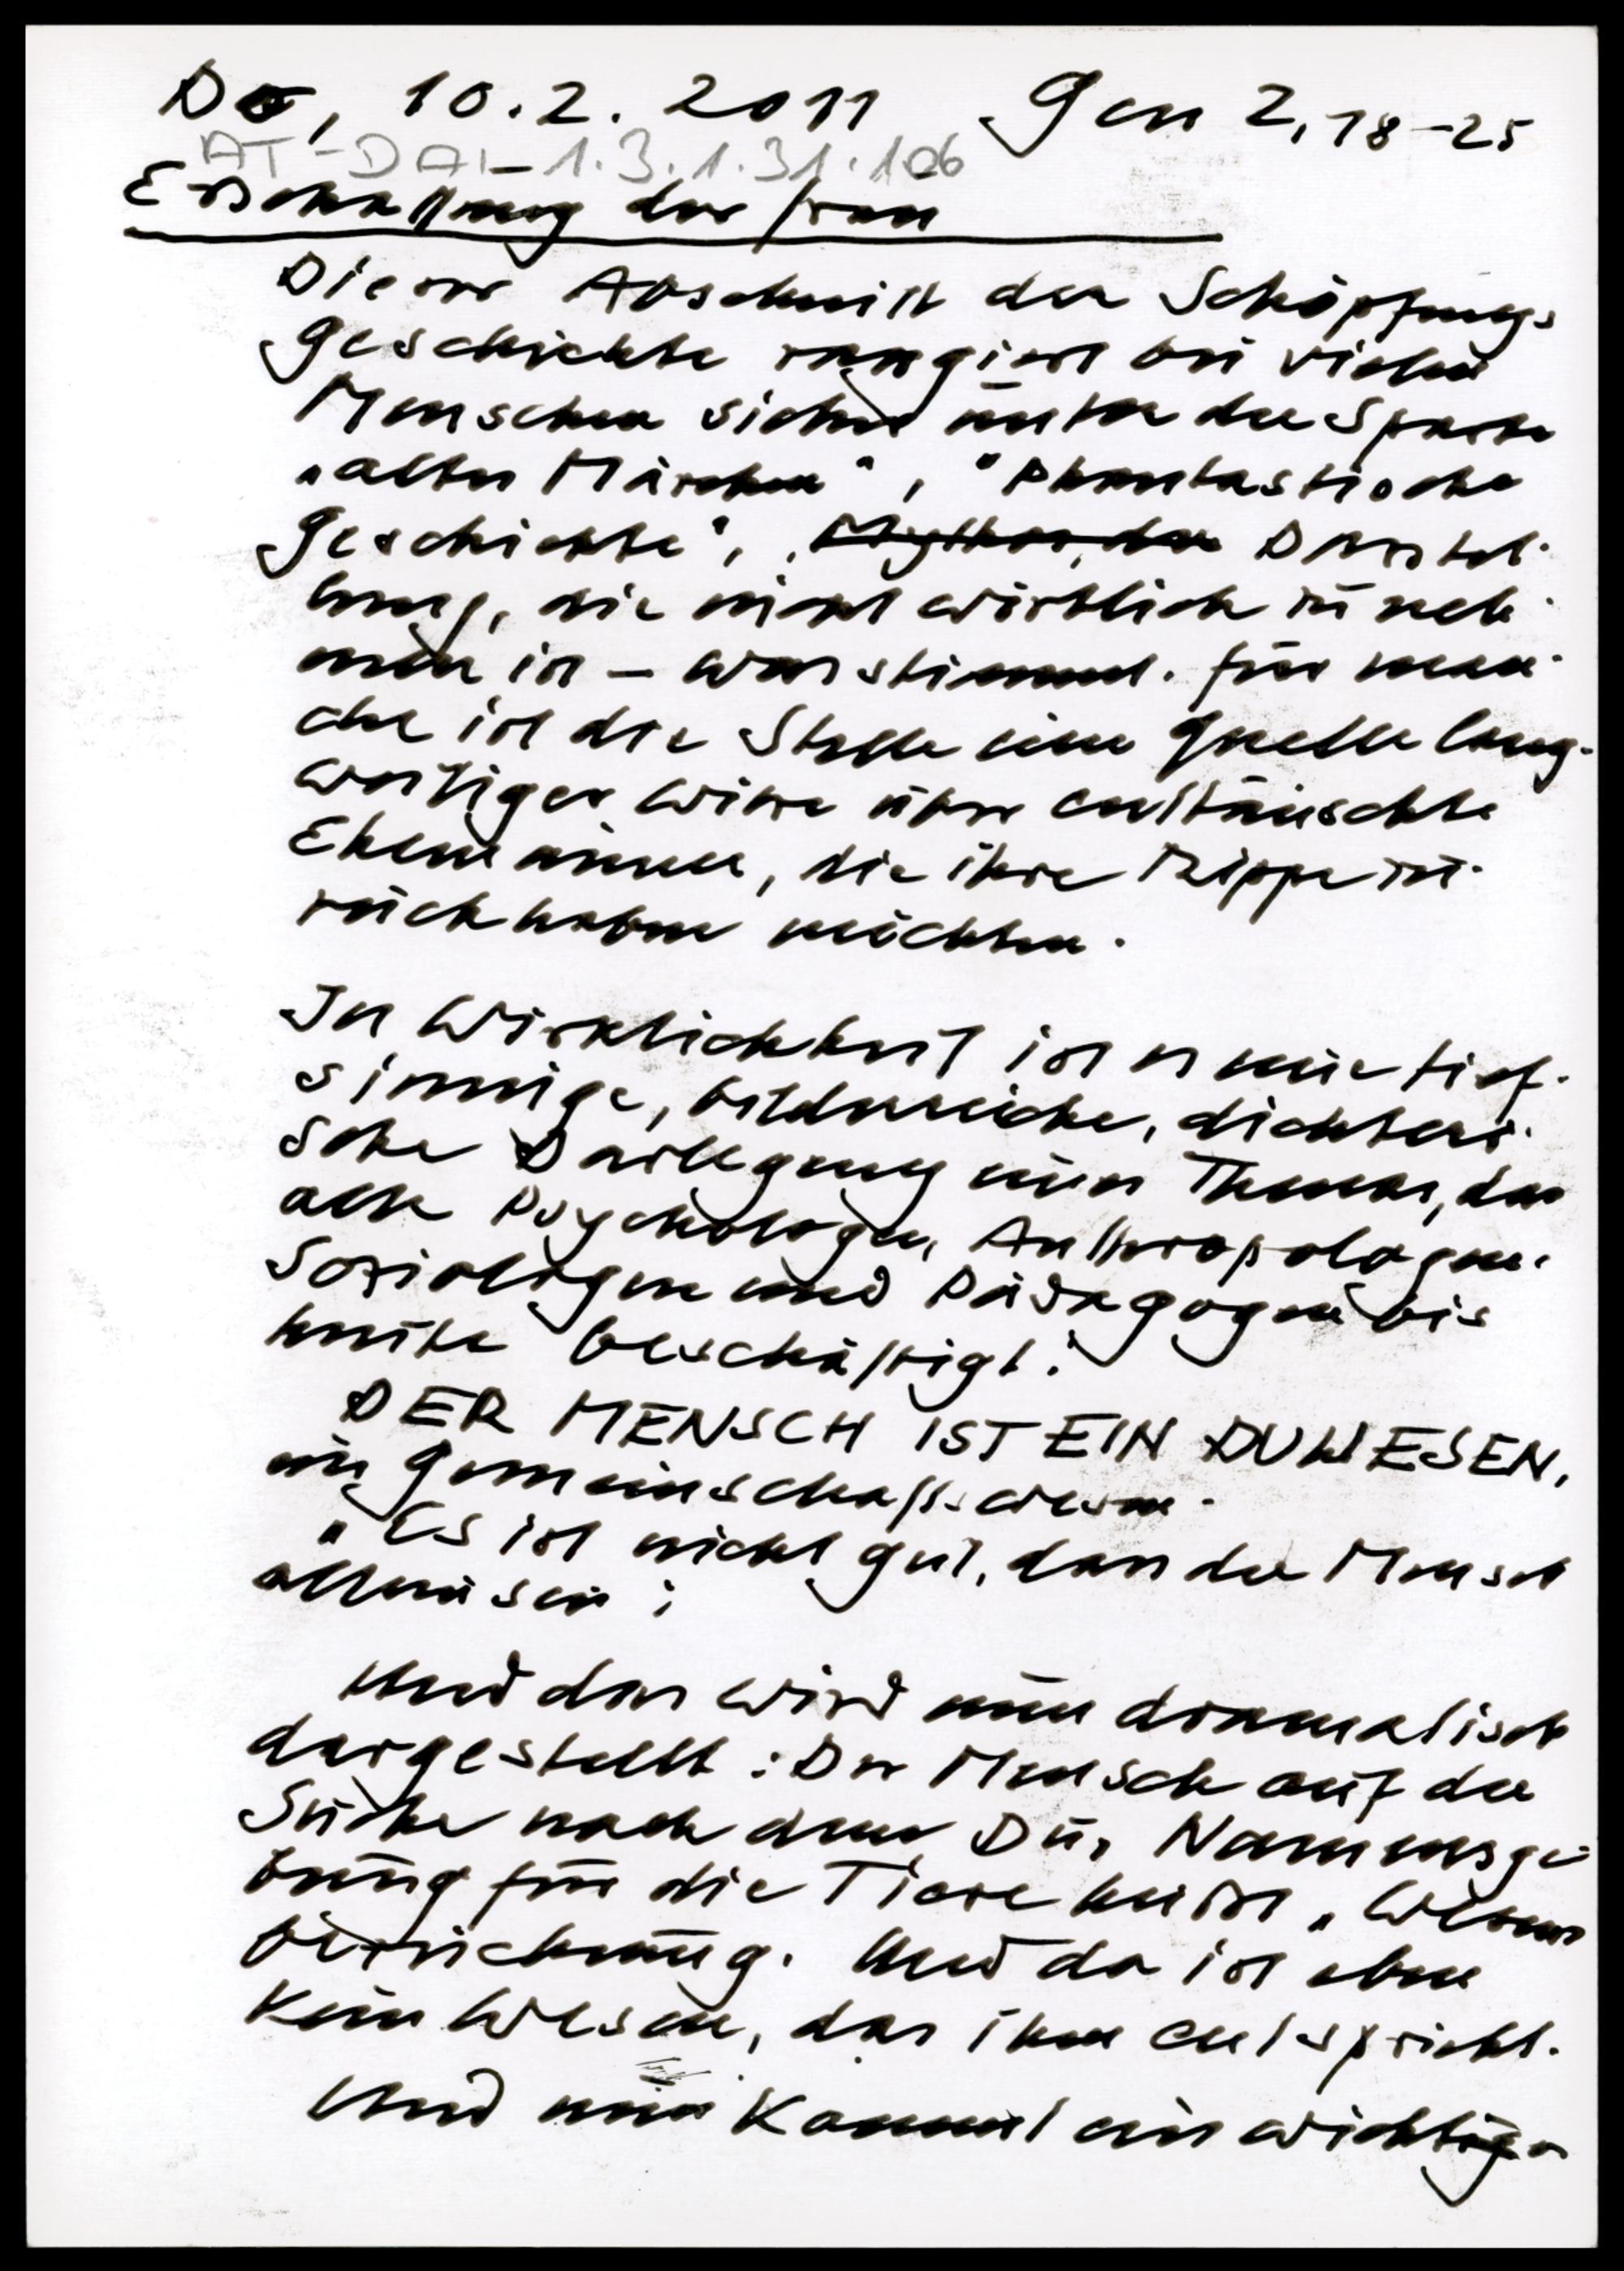 Do, 10.2.2011 Gen 2,18-25
AT-DAI-1.3.1.31.106
Erschaffung der Frau
Dieser Abschnitt der Schöpfungs
geschichte rangiert bei vielen
Menschen sicher unter der Sparte
„altes Märchen", "Phantastische
Geschichte", Mythos, der Darstel-
lung, die nicht wörtlich zu neh-
men ist – was stimmt. Für man-
che ist die Stelle eine Quelle lang-
wertiger Witze über enttäuschte
Ehemänner, die ihre Rippe zu-
rückhaben möchten.
In Wirklichkeit ist es eine tief-
sinnige, bilderreiche, dichteri-
sche Darlegung eines Themas, das
alle Psychologen, Anthropologen,
Soziologen und Pädagogen bis
heute beschäftigt:
DER MENSCH IST EIN DUWESEN,
ein Gemeinschaftswesen.
„Es ist nicht gut, dass der Mensch
allein sei";
Und das wird nun dramatisch
dargestellt: Der Mensch auf der
Suche nach dem Du, Namensge-
bung für die Tiere heißt „Wesens
bezeichnung. Und da ist eben
kein Wesen, das ihm entspricht.
Und nun kommt ein wichtiger